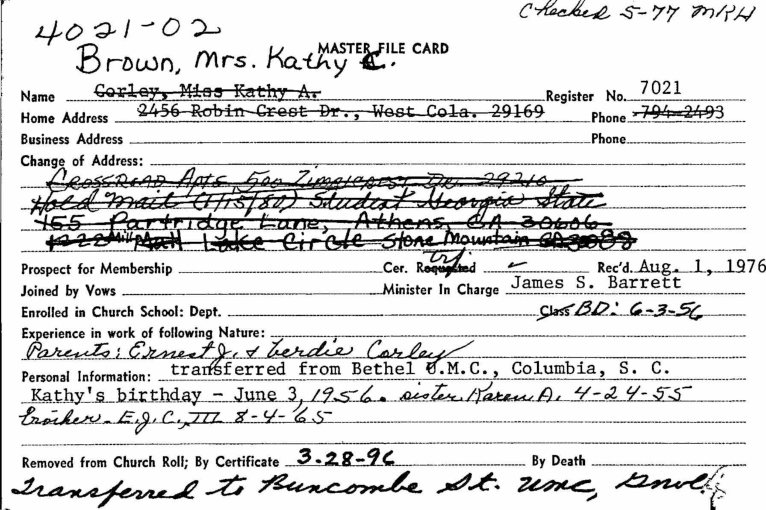 Checked 5-77 MRH
4021-02
MASTER FILE CARD
Brown, Mrs. Kathy C.
Name Corley, Miss Kathy A. Register No. 7021
Home Address 2456 Robin Crest Dr., West Cola. 29169 Phone 794-2493
Business Address Phone
Change of Address:
Crossroad Apts 500 Zimalcrest Dr. 29210
Hold Mail (1/15/80) Student Georgia State
155 Partridge Lane, Athens, GA 30606
1222 Mill Lake Circle Stone Mountain GA 30088
Prospect for Membership Cer. Requested Rec'd. Aug. 1, 1976
Joined by Vows Minister In Charge James S. Barrett
Enrolled in Church School: Dept. Class BD: 6-3-56
Experience in work of following Nature:
Parents: Ernest J. & Verdie Corley
Personal Information: transferred from Bethel U.M.C., Columbia, S. C.
Kathy's birthday - June 3, 1956. sister Karen A. 4-24-55
brother - E.J.C., III 8-4-65
Removed from Church Roll; By Certificate 3-28-96 By Death
Transferred to Buncombe St. UMC, Gnvl.